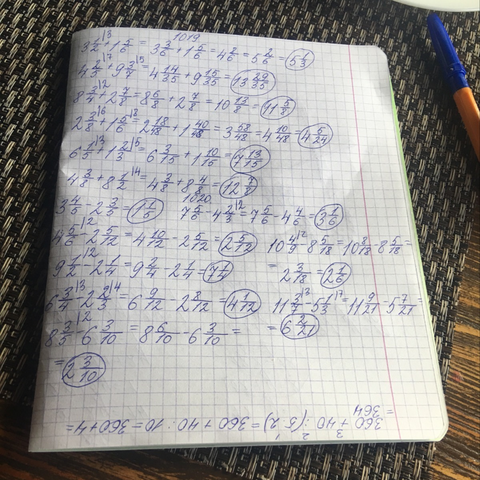 1019
3 1/2 |3 + 1 5/6 = 3 3/6 + 1 5/6 = 4 8/6 = 5 2/6 = 5 1/3
4 2/5 |7 + 9 3/7 |5 = 4 14/35 + 9 15/35 = 13 29/35
8 3/4 |2 + 2 7/8 = 8 6/8 + 2 7/8 = 10 13/8 = 11 5/8
2 3/8 |6 + 1 5/6 |8 = 2 18/48 + 1 40/48 = 3 58/48 = 4 10/48 = 4 5/24
6 1/5 |3 + 1 2/3 |5 = 6 3/15 + 1 10/15 = 7 13/15
4 3/8 + 8 1/2 |4 = 4 3/8 + 8 4/8 = 12 7/8
1020
3 4/5 - 2 3/5 = 1 1/5 7 5/6 - 4 2/3 |2 = 7 5/6 - 4 4/6 = 3 1/6
4 5/6 |2 - 2 5/12 = 4 10/12 - 2 5/12 = 2 5/12 10 4/9 |2 - 8 5/18 = 10 8/18 - 8 5/18 =
9 1/2 |2 - 2 1/4 = 9 2/4 - 2 1/4 = 7 1/4 = 2 3/18 = 2 1/6
6 3/4 |3 - 2 2/3 |4 = 6 9/12 - 2 8/12 = 4 1/12 11 3/7 |3 - 5 1/3 |7 = 11 9/21 - 5 7/21 =
8 3/5 |2 - 6 3/10 = 8 6/10 - 6 3/10 = = 6 2/21
= 2 3/10
360 + 40 : (5 · 2) = 360 + 40 : 10 = 360 + 4 =
= 364